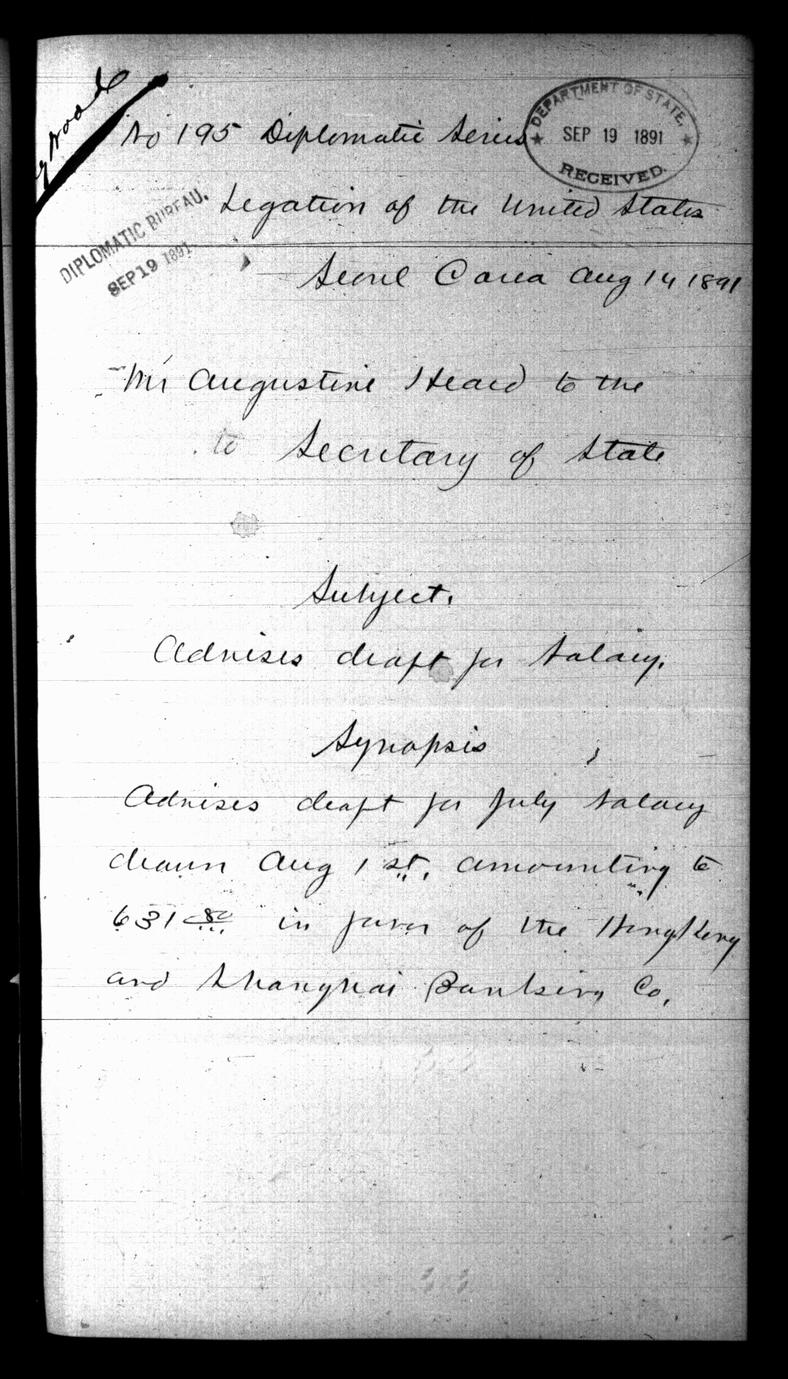 No 195 Diplomatic Series
DEPARTMENT OF STATE,
SEP 19 1891
RECEIVED.
Legation of the United States
DIPLOMATIC BUREAU.
SEP 19 1891
Seoul Corea Aug 14 1891
Mr Augustine Heard to the
to Secretary of State
Subject.
Advises draft for Salary.
Synopsis
Advises draft for July Salary
drawn Aug 1st, amounting to
631 80 in favor of the HongKong
and Shanghai Banking Co,